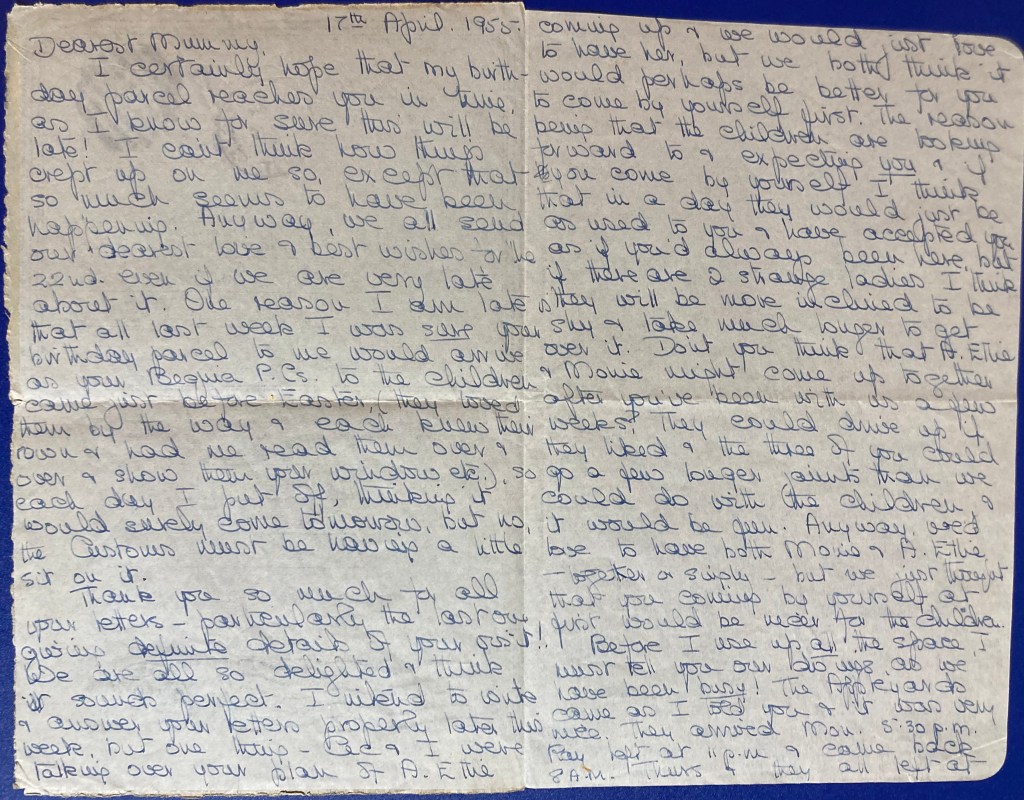 17th April. 1955.
Dearest Mummy,
I certainly hope that my birth-
day parcel reaches you in time,
as I know for sure this will be
late! I can't think how things
crept up on me so, except that
so much seems to have been
happening. Anyway, we all send
our dearest love & best wishes for the
22nd. even if we are very late
about it. One reason I am late is
that all last week I was sure your
birthday parcel to me would arrive
as your Bequia P.Cs. to the children
came just before Easter, (they loved
them by the way & each knew their
own & had me read them over &
over & show them your window etc.), so
each day I put off, thinking it
would surely come tomorrow, but no,
the Customs must be having a little
sit on it.
Thank you so much for all
your letters - particularly the last one
giving definite details of your visit!!
We are all so delighted & think
it sounds perfect. I intend to write
& answer your letters properly later this
week, but one thing - & I were
talking over your plan of A. Elie
coming up & we would just love
to have her, but we both think it
would perhaps be better for you
to come by yourself first. The reason
being that the children are looking
forward to & expecting you & if
you come by yourself I think
that in a day they would just be
as used to you & have accepted you
as if you'd always been here, but
if there are 2 strange ladies I think
they will be more inclined to be
shy & take much longer to get
over it. Don't you think that A. Elie
& Monie might come up together
after you've been with us a few
weeks? They could drive up if
they liked & the three of you could
go a few longer jaunts than we
could do with the children, &
it would be fun. Anyway, we'd
love to have both Monie & A. Elie
- together or singly - but we just thought
that you coming by yourself at
first would be nicer for the children.
Before I use up all the space, I
must tell you our doings, as we
have been busy! The Appleyards
came as I told you & it was very
nice. They arrived Mon. 5:30 p.m.
Ray left at 11 p.m & came back
8 A.M. Thurs & they all left at